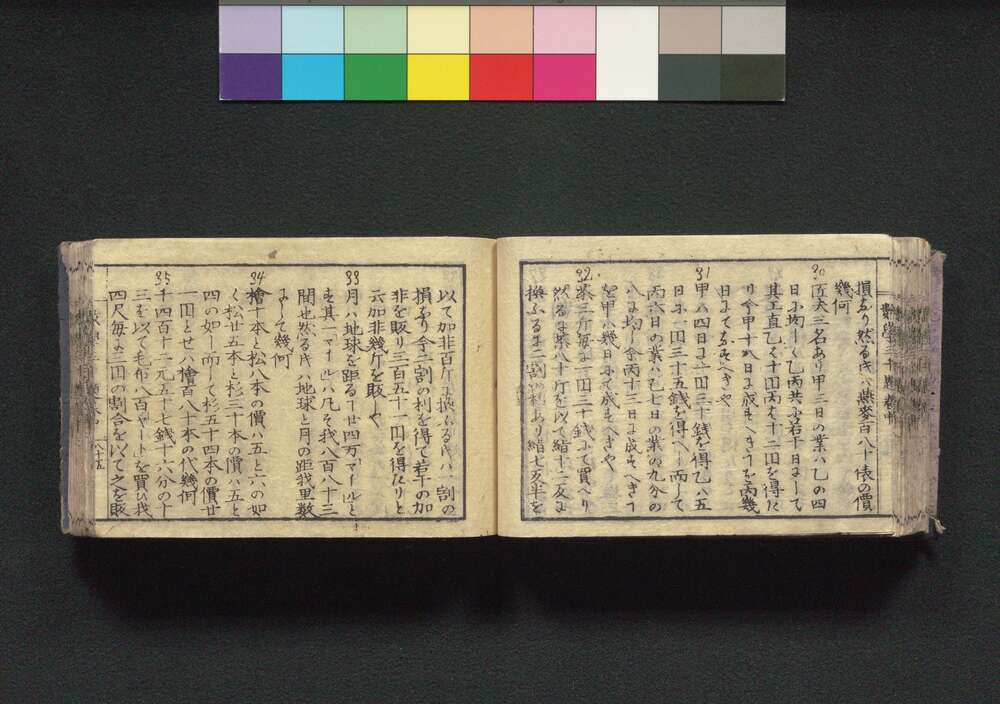 損なり然る𪜈ハ燕麥百八十俵の價
幾何
30
百夫三名あり甲三日の業ハ乙の四
日に均しく乙丙共に若干日にして
其工直乙ハ十円丙ハ十二円を得た
り今甲十五日に成すへきを丙幾
日にて
31
甲ハ四日に一円三十錢を得乙ハ五
日に一円三十五錢を得へし而して
丙六日の業ハ乙七日の業の九分の
八に均し今丙十三日に成すへきを
を甲ハ幾日にて成すへきや
32
茶三斤毎に一円三十錢にて買へり
然るに茶八十斤を以て絹十二反に
換ふるに二割の利あり絹七反半を
以て加非百斤に換ふる𪜈ハ一割の
損なり今二割の利を得て若干の加
非を販り三百五十一円を得たりと
云加非幾斤を販しや
33
月ハ地球を距るヿ廿四万マイルと
す其一マイルハ凡そ我八百八十三
間也然る𪜈ハ地球と月の距我里数
にして幾何
34
檜十本と松八本の價ハ五と六の如
く松廿五本と杉三十本の價ハ五と
四の如し而して杉五十四本の價廿
一円とせハ檜百八十本の代幾何
35
千四百十二元五十七錢十六分の十
三を以て毛布八百ヤードを買ひ我
四尺毎に三円の割合を以て之を販